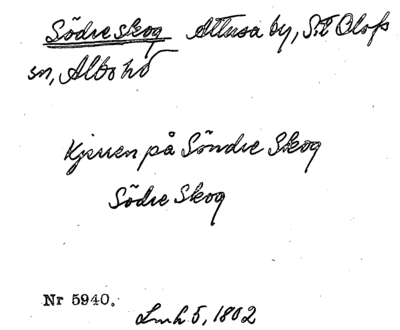 Södre skog Attusa by, S:t Olofs
sn, Albo hd
Kjerren på Söndre Skog
Södre Skog
Nr 5940.
Lmh 5, 1802